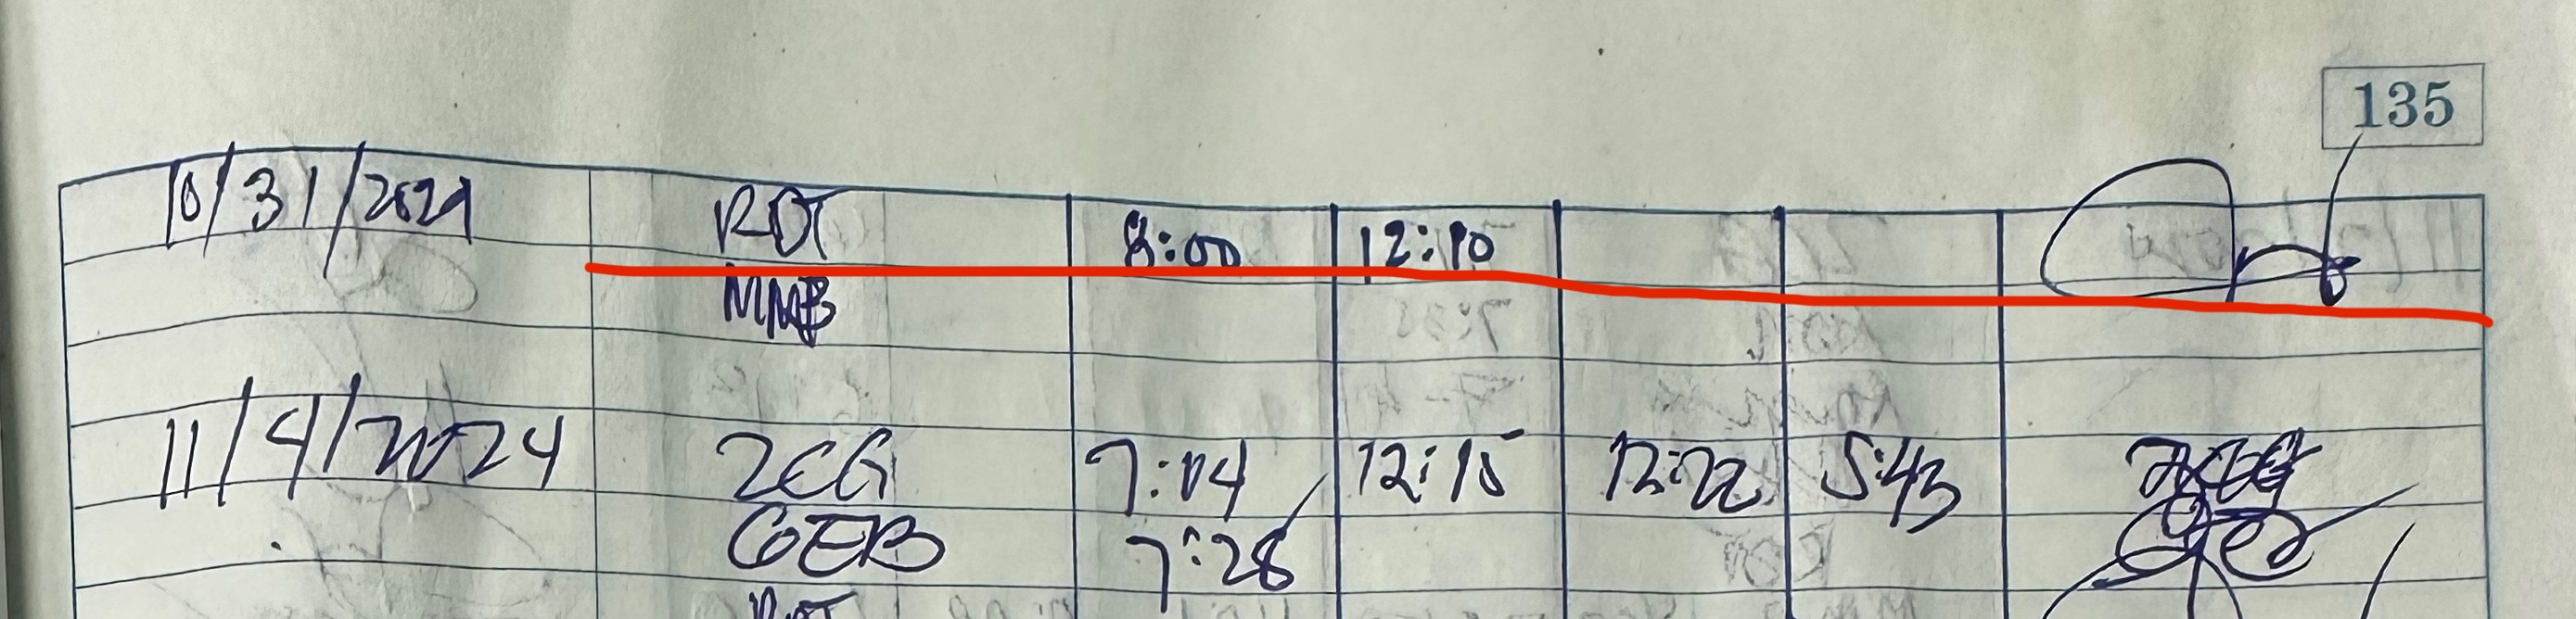 135
10/31/2024 RDT 8:00 12:10
MMB
11/4/2024 ZCG 7:14 12:15 12:22 5:43 ZCG
GEB 7:28
RDT